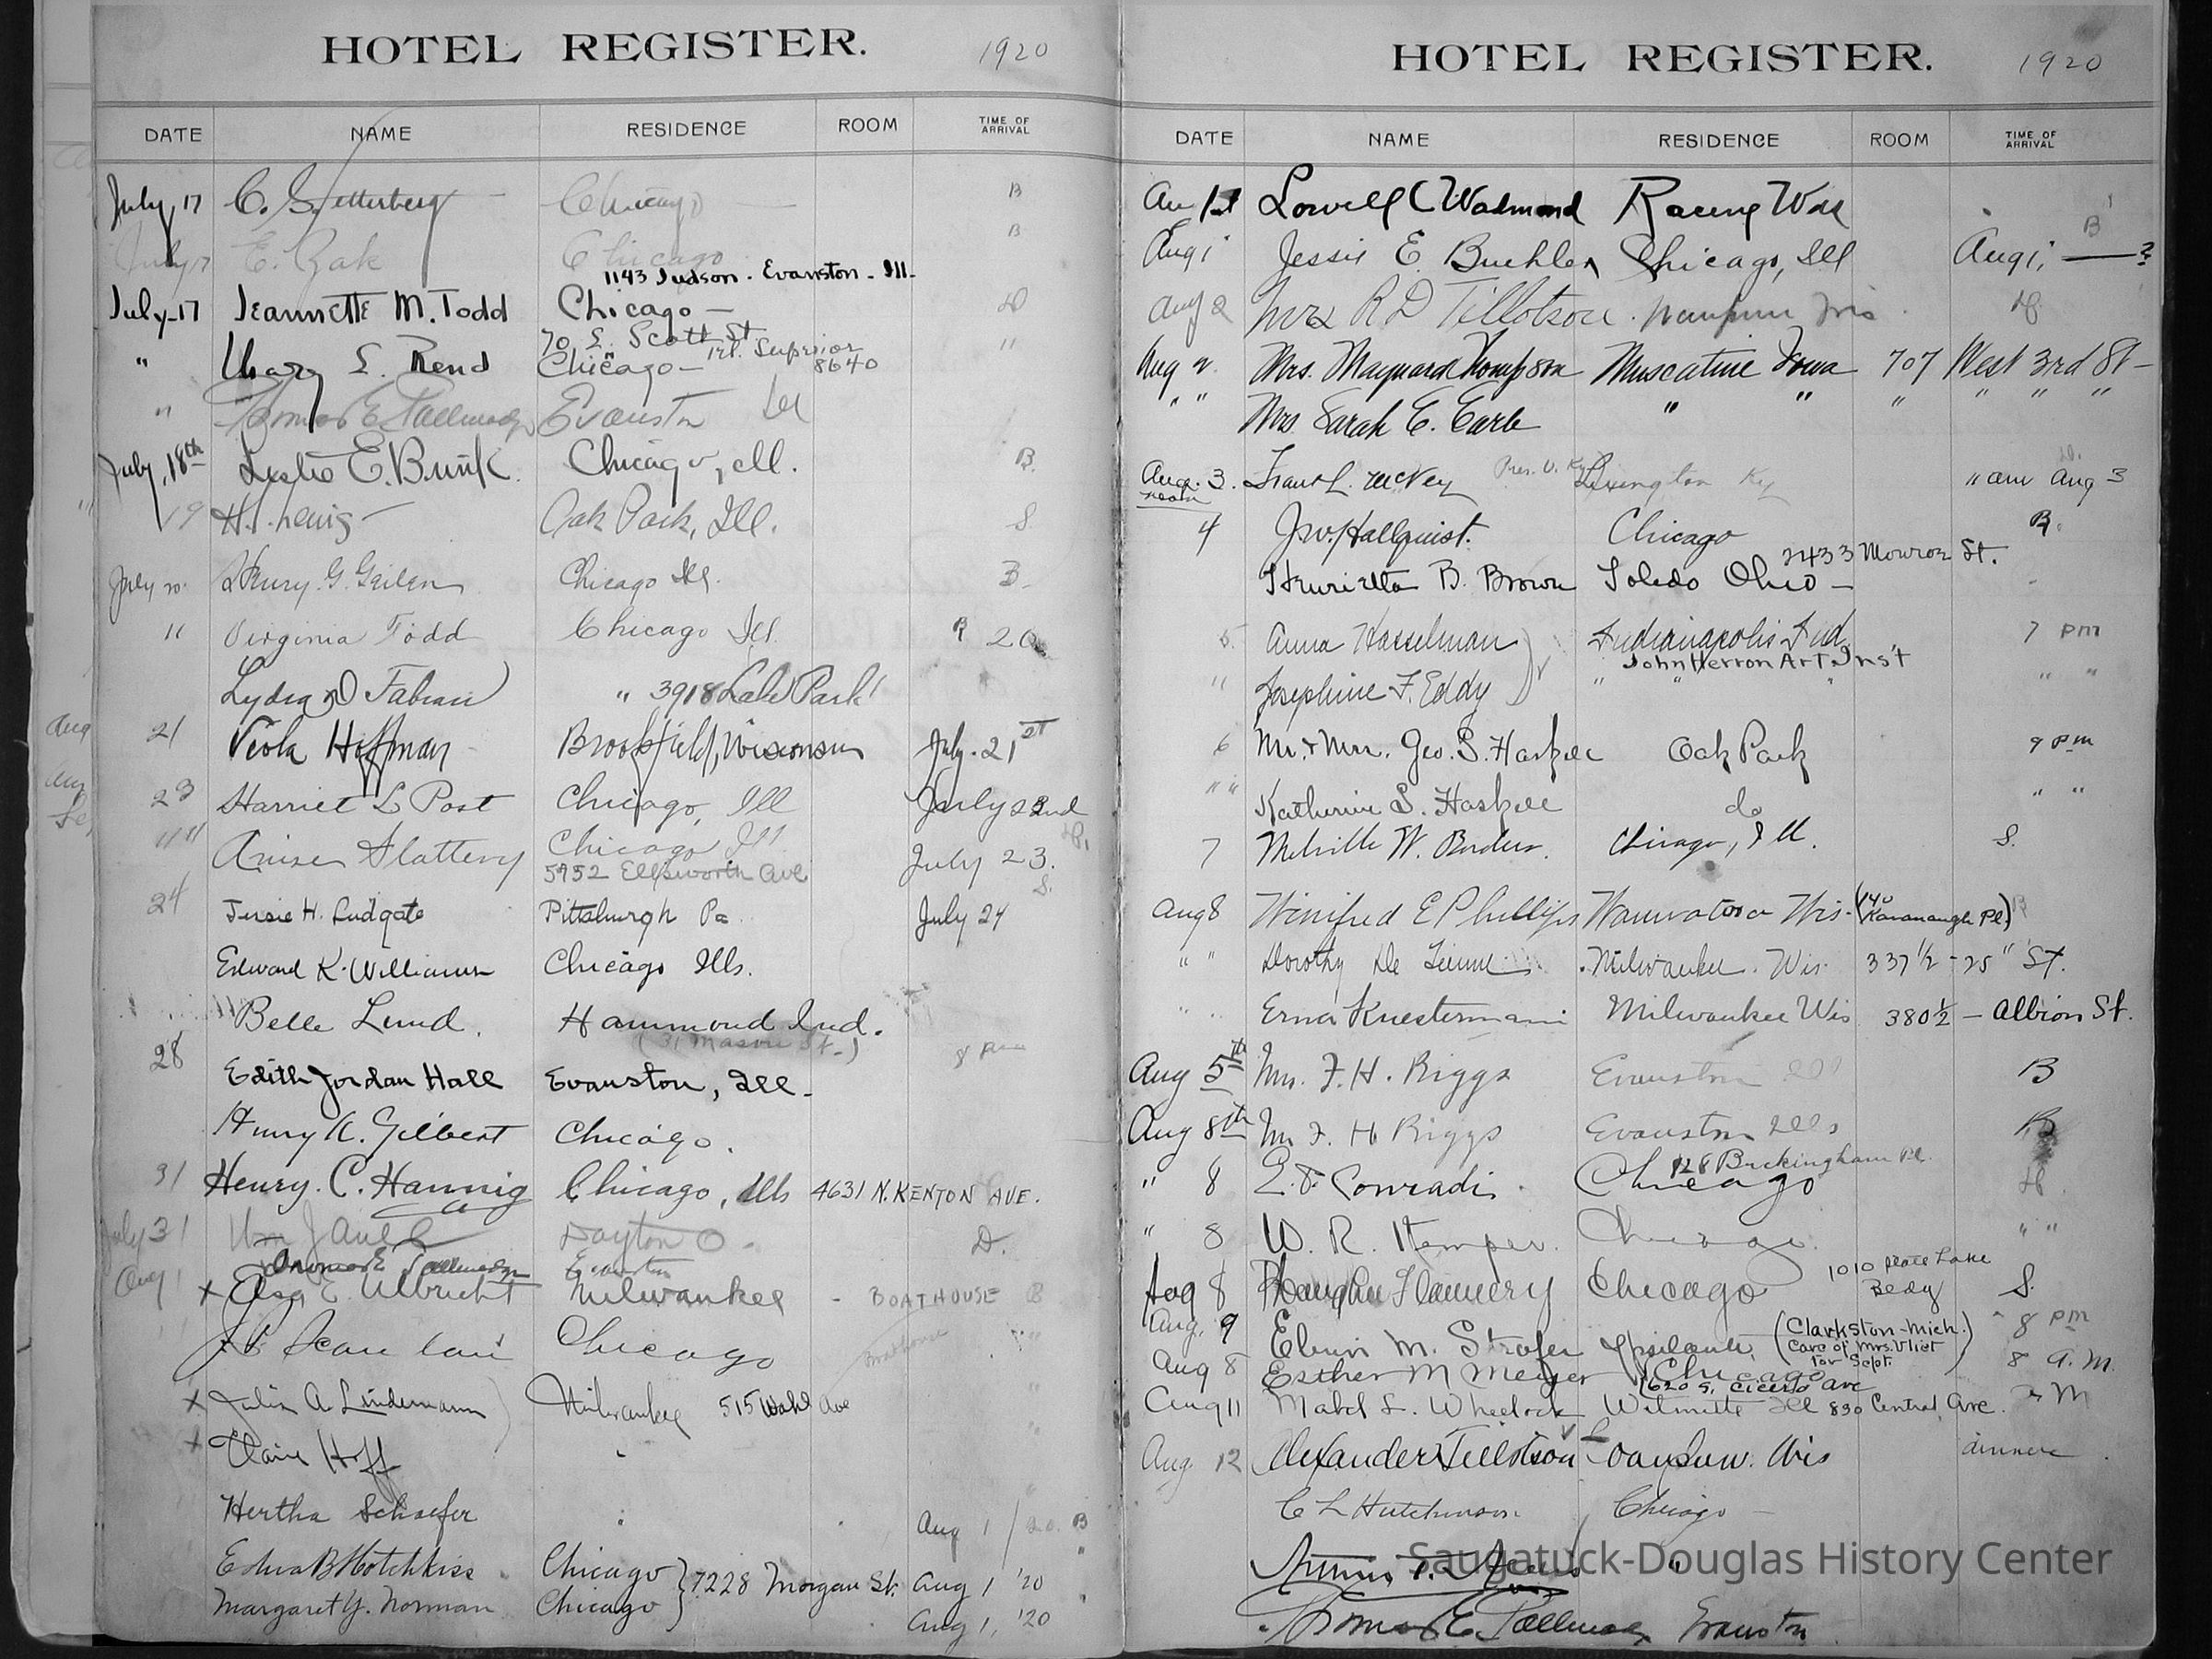 HOTEL REGISTER. 1920
DATE NAME RESIDENCE ROOM TIME OF ARRIVAL
July 17 C. Chicago B
July 17 E. Zak Chicago B
1143 Judson. Evanston - Ill.
July-17 Jeannette M. Todd Chicago - D
70 E. Scott St.
Tel. Superior
" Mary E. Rend Chicago - 8640 "
" Thomas E. Tallmadge Evanston Ill
July, 18th Leslie E. Bunk. Chicago, Ill. B.
" 19 H. Lewis - Oak Park, Ill. S.
July 20 Henry. G. Chicago Ill. B-
" Virginia Todd Chicago Ill. B 20
Lydia D Fabian " 3918 Lake Park
21 Viola Hoffman Brookfield, Wisconsin July. 21st
23 Harriet L Post Chicago, Ill July 22nd
"" Slattery Chicago Ill July 23.
5752 Ellsworth Ave
S.
24 Jessie H. Ludgate Pittsburgh Pa July 24
Edward K. Williams Chicago Ills.
Belle Lund. Hammond Ind.
(31 Mason St.)
28 8 pm
Edith Jordan Hall Evanston, Ill.
Henry K. Gilbert Chicago.
31 Henry. C. Hannig Chicago, Ills 4631 N. KENTON AVE.
July 31 Wm J Dayton O. D.
Thomas E Tallmadge Evanston
Aug 1 x E. Ulbricht Milwaukee - BOATHOUSE B
Chicago Boathouse
x A. Lindemann Milwaukee 515 Wahl Ave
x Claire Hoff
Hertha Schaefer Aug 1 / 20. B
Edna B Hotchkiss. Chicago } 7228 Morgan St. Aug 1 '20
Margaret Y. Norman Chicago Aug 1, '20
HOTEL REGISTER. 1920
DATE NAME RESIDENCE ROOM TIME OF ARRIVAL
Au 1st Lowell C Racine Wis
B
Aug 1 Jessie E. Buehler Chicago, Ill Aug 1, — ?
Aug 2 Mrs R D Tillotson.
Aug 2 Mrs. Maynard Thompson Muscatine Iowa 707 West 3rd St -
" " Mrs. Sarah E. Earle " " " " " "
Aug. 3. Frank L. McVey Pres. U. Ky Lexington Ky " am Aug 3
noon
4 J.W. Hallquist. Chicago B.
2433 Monroe St.
Henrietta B. Brown Toledo Ohio -
5 Anna Hasselman Indianapolis Ind. 7 pm
John Herron Art Inst
" Josephine F. Eddy " " " " "
6 Mr. & Mrs. Geo. S. Haskell Oak Park 9 pm
" " Katherine S. Haskell do " "
7 Melville W. Borders. Chicago, Ill. S.
Aug 8 Winifred E Phillips Wauwatosa Wis. (140 Kavanaugh Pl) B
" " Dorothy Milwaukee. Wis. 337 1/2 - 25" St.
" " Erna Kuestermann Milwaukee Wis 380 1/2 - Albion St.
Aug 5th Mrs. F. H. Riggs Evanston Ill B
Aug 8th Mr F. H Riggs Evanston Ills B
128 Buckingham Pl.
" 8 Conradi. Chicago D.
" 8 W. R. Kemper. Chicago. " "
1010 State Lake
Aug 8 Vaughn Flannery Chicago Bldg S.
Aug. 9 M. Strafer Ypsilanti (Clarkston-Mich. 8 pm
Care of Mrs. Vliet
for Sept.)
Aug 8 Esther M Meyer Chicago 8 A.M.
1620 S. Cicero Ave
Aug 11 Mabel L. Wheelock Wilmette Ill 830 Central Ave. M
Aug 12 Alexander Tillotson Wis dinner
C L Hutchinson. Chicago -
"
Thomas E. Tallmadge Evanston
Saugatuck-Douglas History Center